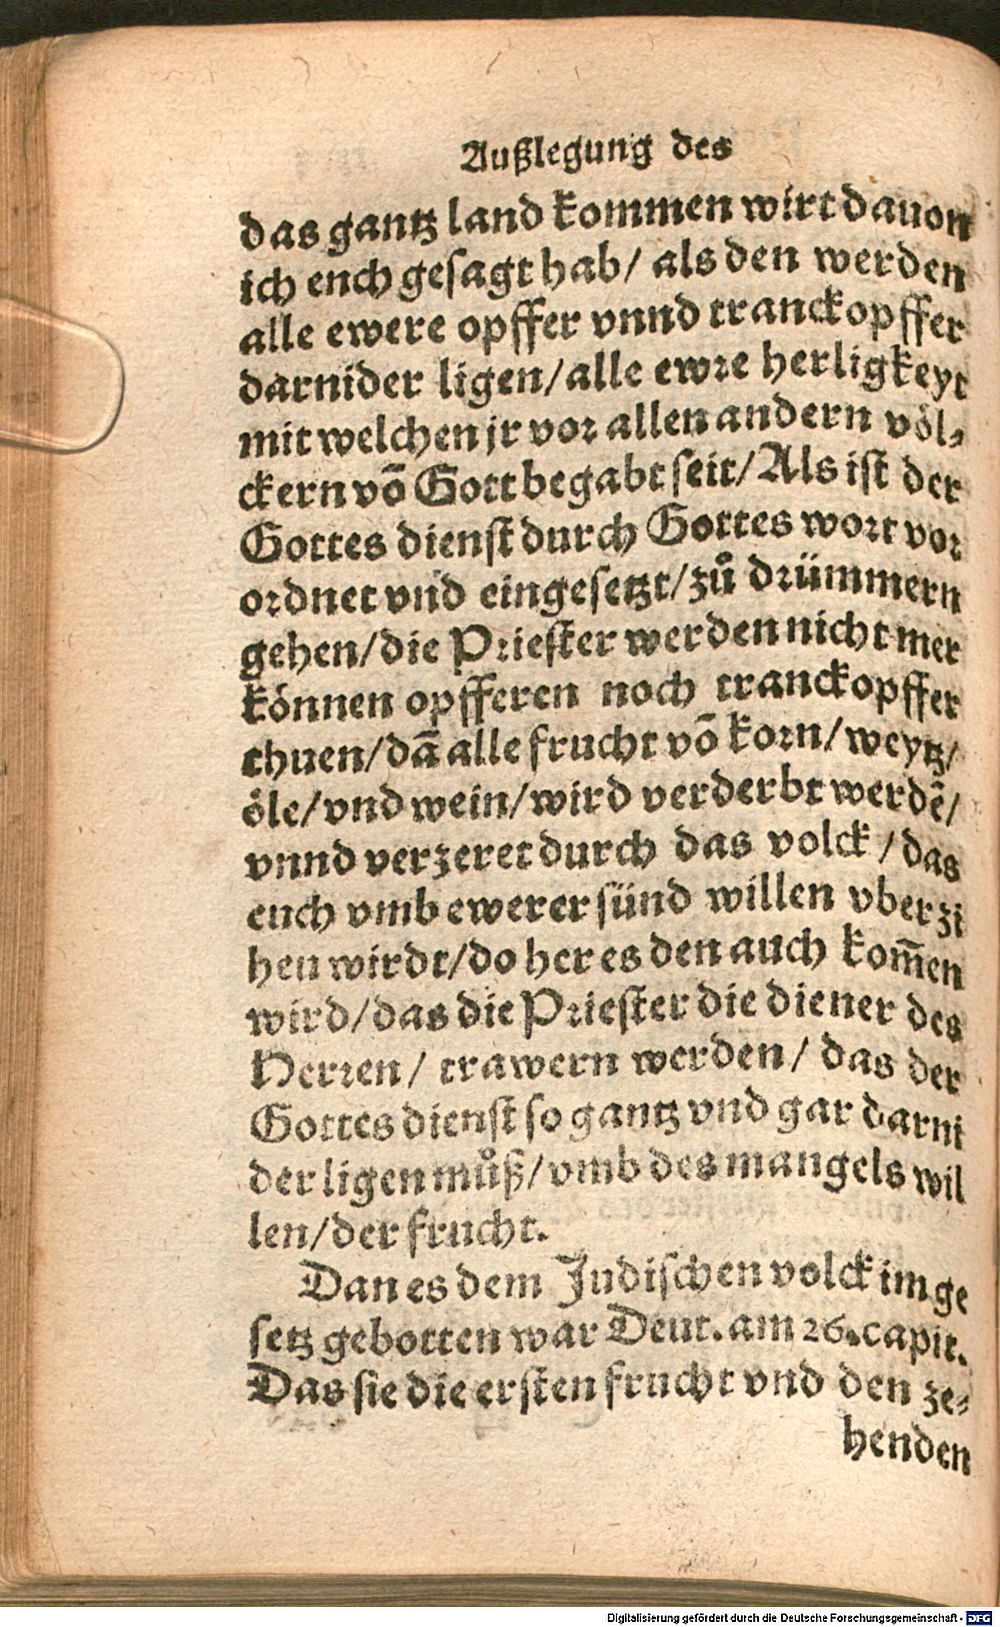 Außlegung des
das gantz land kommen wirt dauon
ich ench gesagt hab/ als den werden
alle ewere opffer vnnd tranckopffer
darnider ligen/alle ewre herligkeyt
mit welchen jr vor allen andern völ⸗
ckern võ Gott begabt seit/Als ist der
Gottes dienst durch Gottes wort vor
ordnet vnd eingesetzt/zů drümmern
gehen/die Priester werden nicht mer
können opfferen noch tranckopffer
thuen/dañ alle frucht võ korn/weytz/
öle/vnd wein/wird verderbt werdẽ/
vnnd verzeret durch das volck /das
euch vmb ewerer sünd willen vberzi
hen wirdt/do her es den auch kom̃en
wird/das die Priester die diener des
Herren/ trawern werden/ das der
Gottes dienst so gantz vnd gar darni
der ligen můß/vmb des mangels wil
len/der frucht.
Dan es dem Judischen volck im ge
setz gebotten war Deut. am 26. capit.
Das sie die ersten frucht vnd den ze⸗
henden
Digitalisierung gefördert durch die Deutsche Forschungsgemeinschaft - DFG